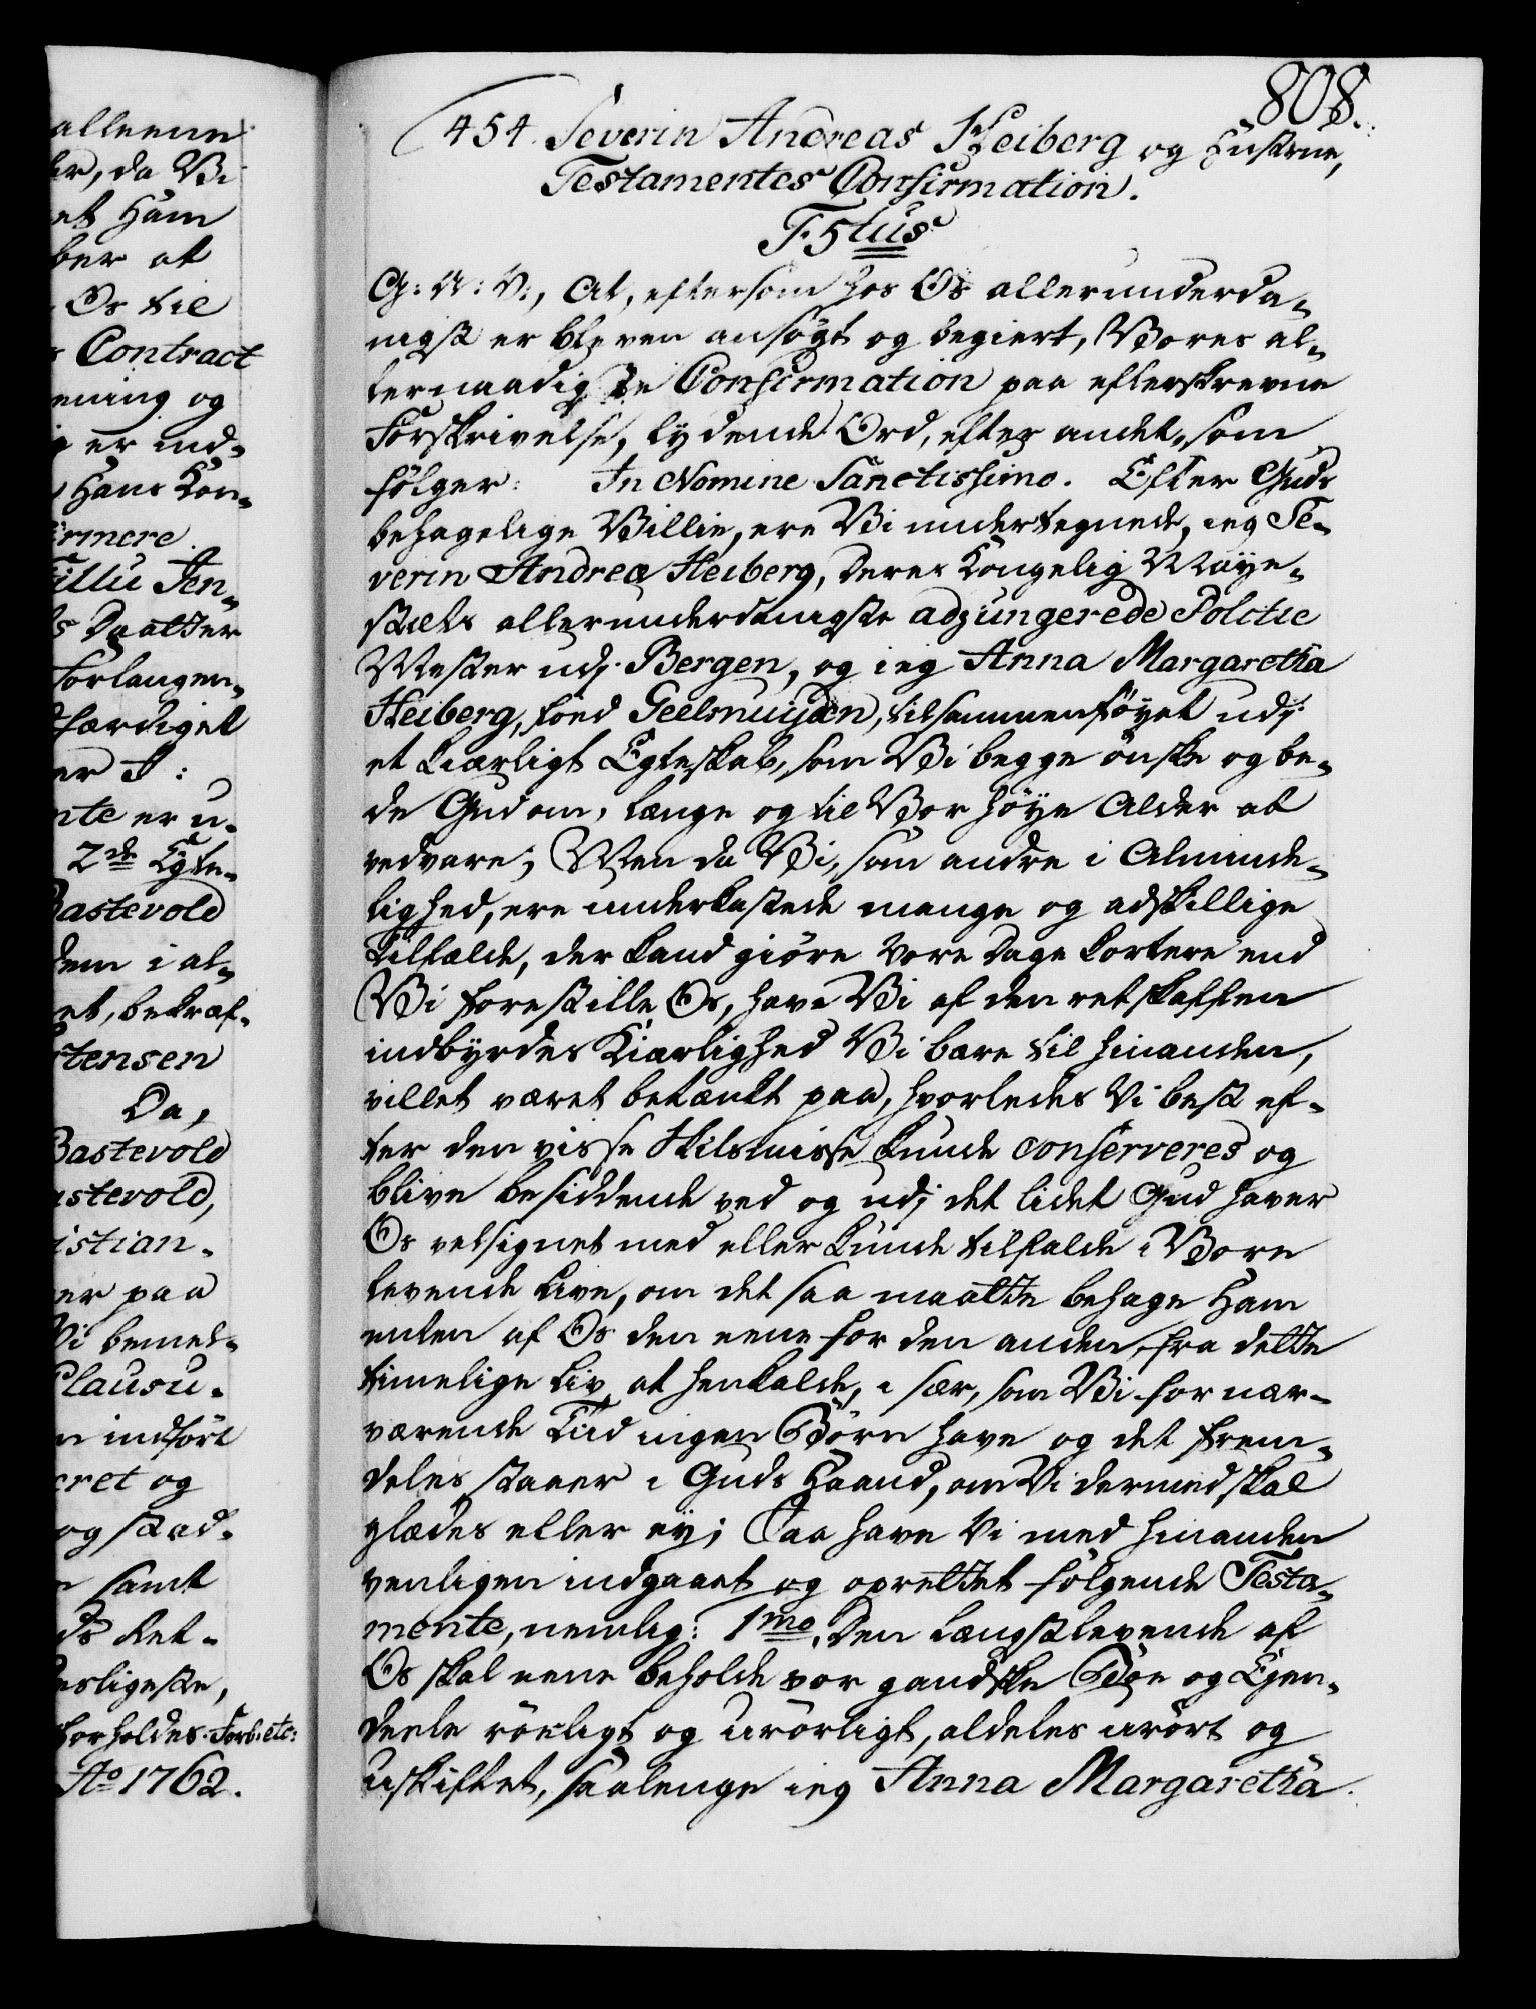 alleene
er, da Vi
et Ham
ber at
Os til
Contract
ening og
er ind-
Hans Kon-
ermere
Sillu Jen-
s Daatter
forlangen-
færdiget
er I:
nte er u-
2de Egte-
Bastevold
dem i al-
et, bekraf-
stensen
Da,
Bastevold
astevold,
istian-
er paa
Vi bemel-
Clausu-
n indført
cret og
og stad-
samt
ds Ret-
desligeste,
forholdes. Forb: etc:
Ao 1762.
808.
454. Severin Andreas Heiberg og Hustrue,
Testamentes Confirmation.
F. 5tus
G: A: V:, At, eftersom hos Os allerunderda-
nigst er bleven ansøgt og begiert, Vores al-
lernaadigste Confirmation paa efterskrevne
Forskrivelse, lydende Ord, efter andet, som
følger: In Nomine Sanctissimo. Efter Guds
behagelige Villie, ere Vi undertegnede, ieg Se-
verin Andreæ Heiberg, Deres Kongelig Maye-
stæts allerunderdanigste adjungerede Politie
Mester udj Bergen, og ieg Anna Margaretha
Heiberg, föed Geelmuijden, tilsammenföyet udj
et kiærligt Egteskab, som Vi begge ønske og be-
de Gud om, længe og til Vor høye Alder at
vedvare; Men da Vi, som andre i Alminde-
lighed, ere underkastede mange og adskillige
Tilfælde, der kand giöre vore Dage kortere end
Vi forestille Os, have Vi af den retskaffen
indbyrdes Kiærlighed Vi bære til hinanden,
villet været betænkt paa, hvorledes Vi best ef-
ter den visse Skilsmisse kunde conserveres og
blive besiddende ved og udj det lidet Gud haver
Os velsignet med eller kunde tilfalde i Vore
levende Live, om det saa maatte behage Ham
enten af Os den eene for den anden, fra dette
timelige Liv at henkalde, i sær, som Vi for nær-
værende Tiid ingen Börn have og det frem-
deles staaer i Guds Haand, om Vi dermed skal
glædes eller ey; Saa have Vi med hinanden
venligen indgaaet og oprettet følgende Testa-
mente, nemlig: 1mo, Den længstlevende af
Os skal eene beholde vor gandske Boe og Ejen-
deele röeligt og urörligt, aldeles urört og
uskiftet, saalenge ieg Anna Margaretha